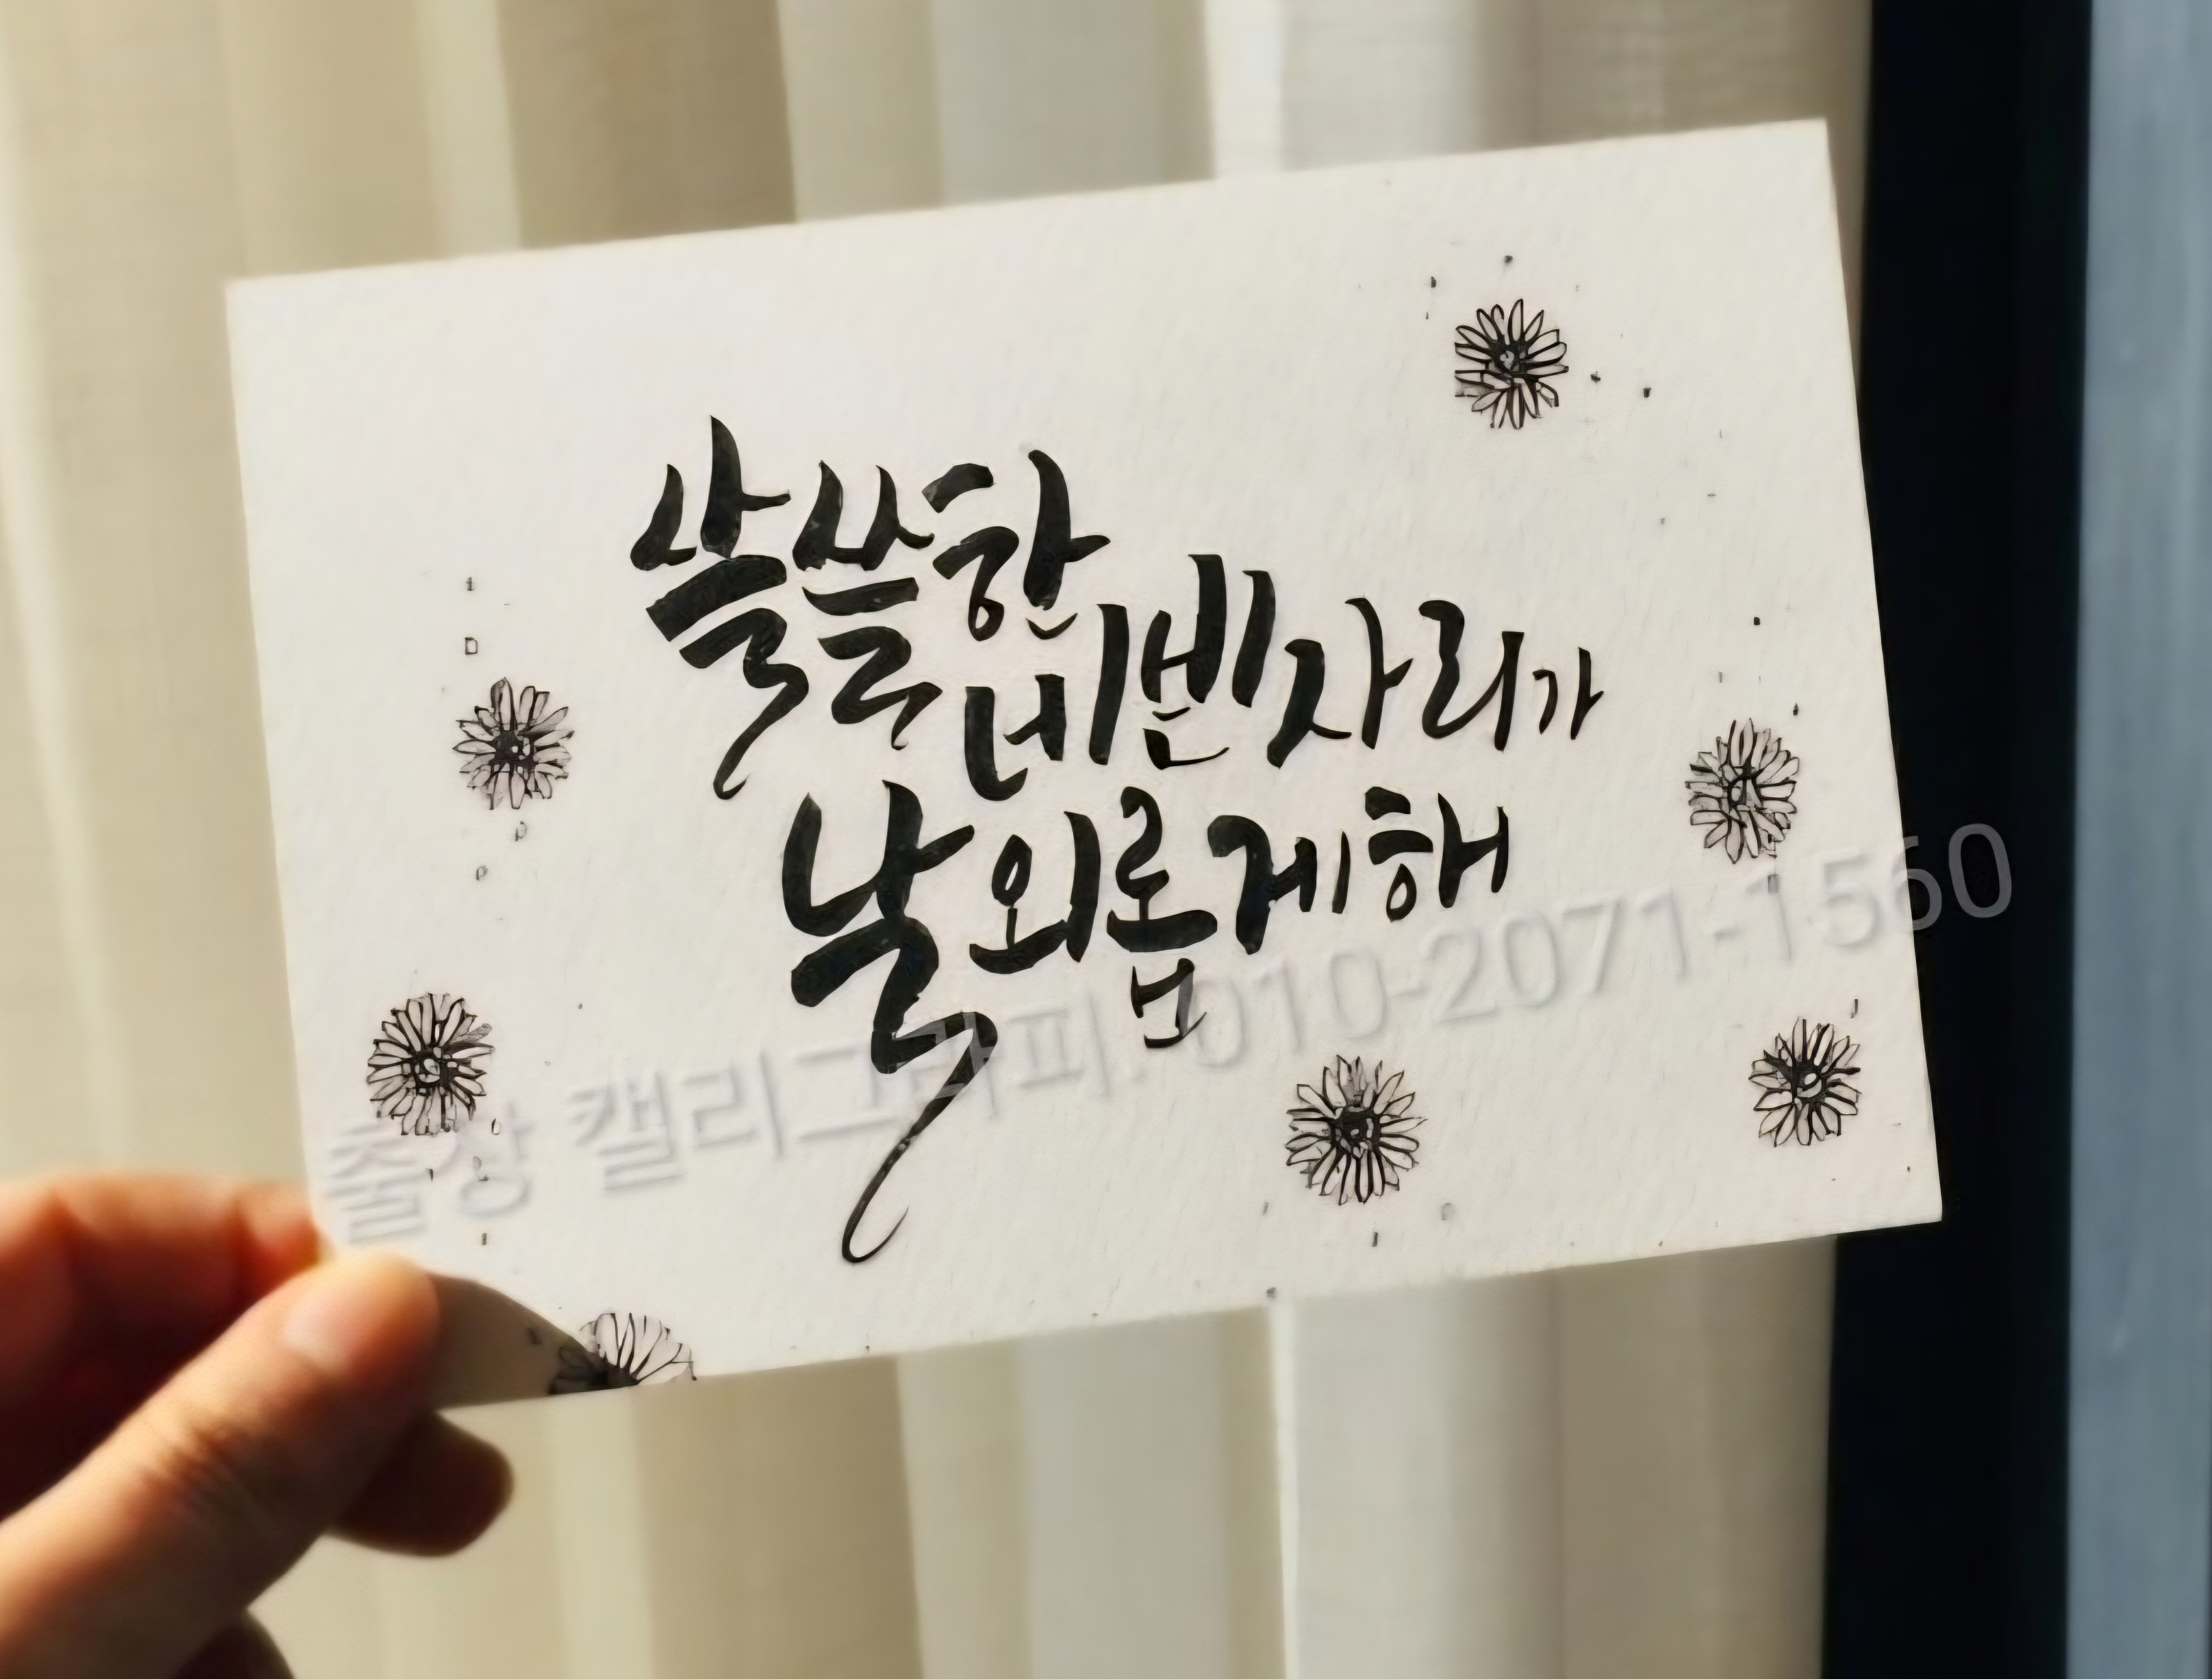 쓸쓸한
네 빈자리가
날 외롭게 해
출장 캘리그라피. 010-2071-1560